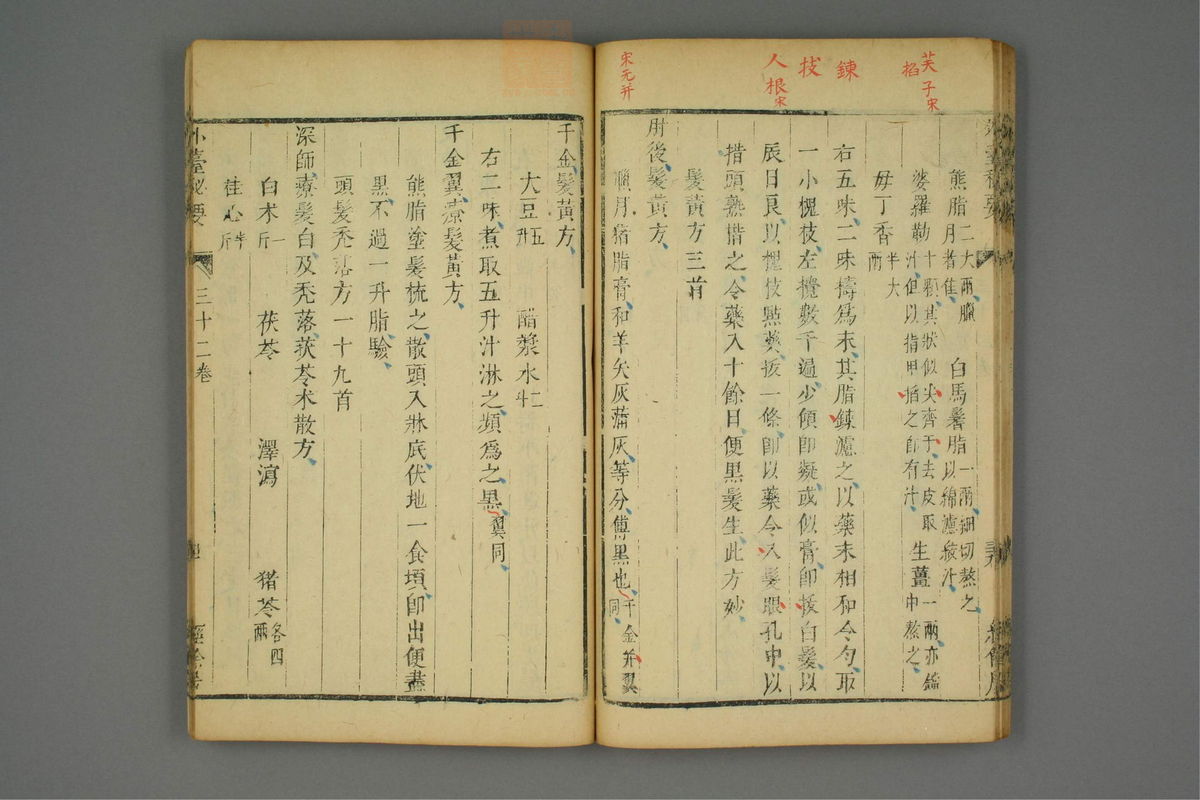 芙子宋
掐
鍊
拔
人根宋
宋元并
熊脂二大兩臘月者佳 白馬鬐脂一兩細切熬之以綿濾絞汁
婆羅勒十顆其狀似尖齊于去皮取汁但以指甲掐之即有汁 生薑一兩亦鐺中熬之
母丁香半大兩
右五味二味擣為末其脂鍊濾之以藥末相和令勻取
一小槐枝左攪數千遍少傾即凝或似膏即拔白髮以
辰日良以槐枝點藥拔一條即以藥令入髮眼孔中以
措頭熟揩之令藥入十餘日便黑髮生此方妙
髮黃方三首
肘後髮黃方
臘月猪脂膏和羊矢灰蒲灰等分傅黑也千金并翼同
千金髮黃方
大豆五升 醋漿水二斗
右二味煮取五升汁淋之頻為之黑翼同
千金翼療髮黃方
熊脂塗髮梳之散頭入牀底伏地一食頃即出便盡
黑不過一升脂驗
頭髮禿落方一十九首
深師療髮白及禿落茯苓术散方
白术一斤 茯苓 澤瀉 猪苓各四兩
桂心半斤
外臺秘要 三十二卷